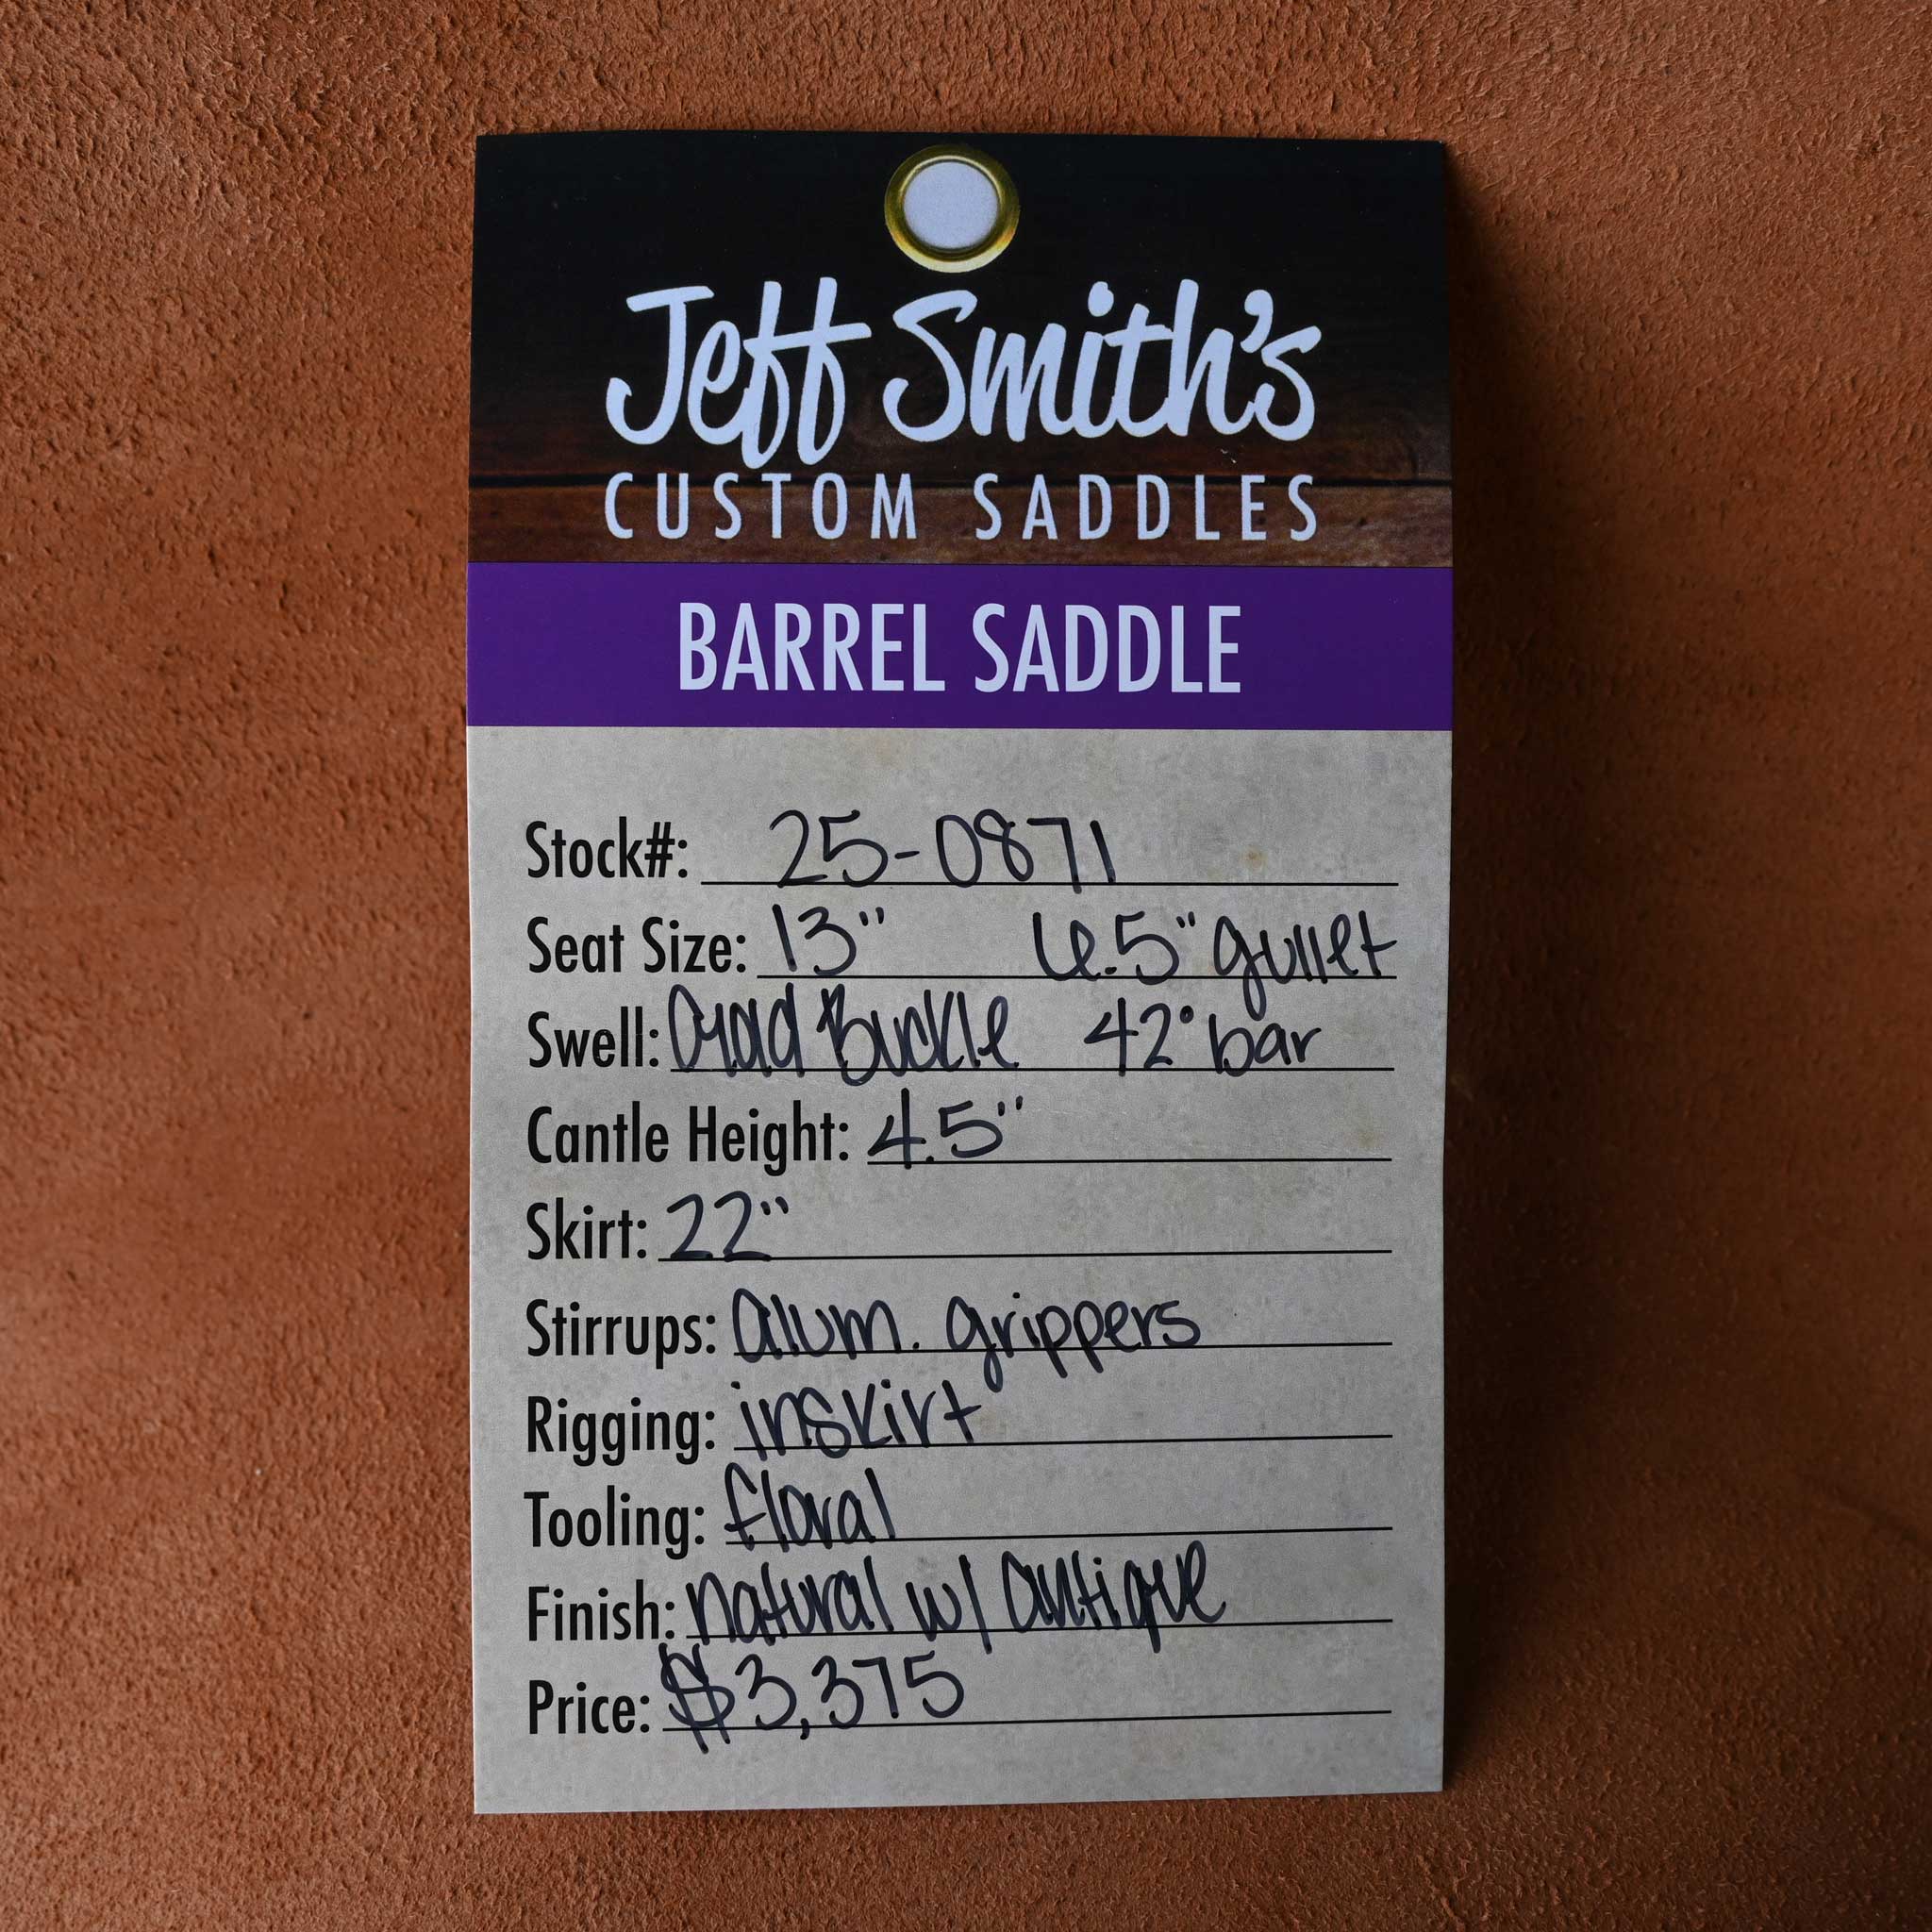 Jeff Smith's
CUSTOM SADDLES
BARREL SADDLE
Stock#: 25-0871
Seat Size: 13" 6.5" gullet
Swell: Buckle 42° bar
Cantle Height: 4.5"
Skirt: 22"
Stirrups: alum. grippers
Rigging: inskirt
Tooling: floral
Finish: natural w/ antique
Price: $3,375